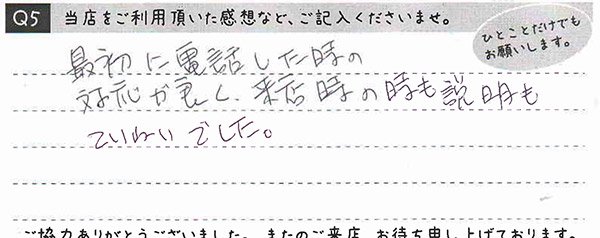 Q5 当店をご利用頂いた感想など、ご記入くださいませ。
ひとことだけでも
お願いします。
最初に電話した時の
対応が良く、来店時の時も説明も
ていねいでした。
ご協力ありがとうございました。またのご来店、お待ち申し上げております。